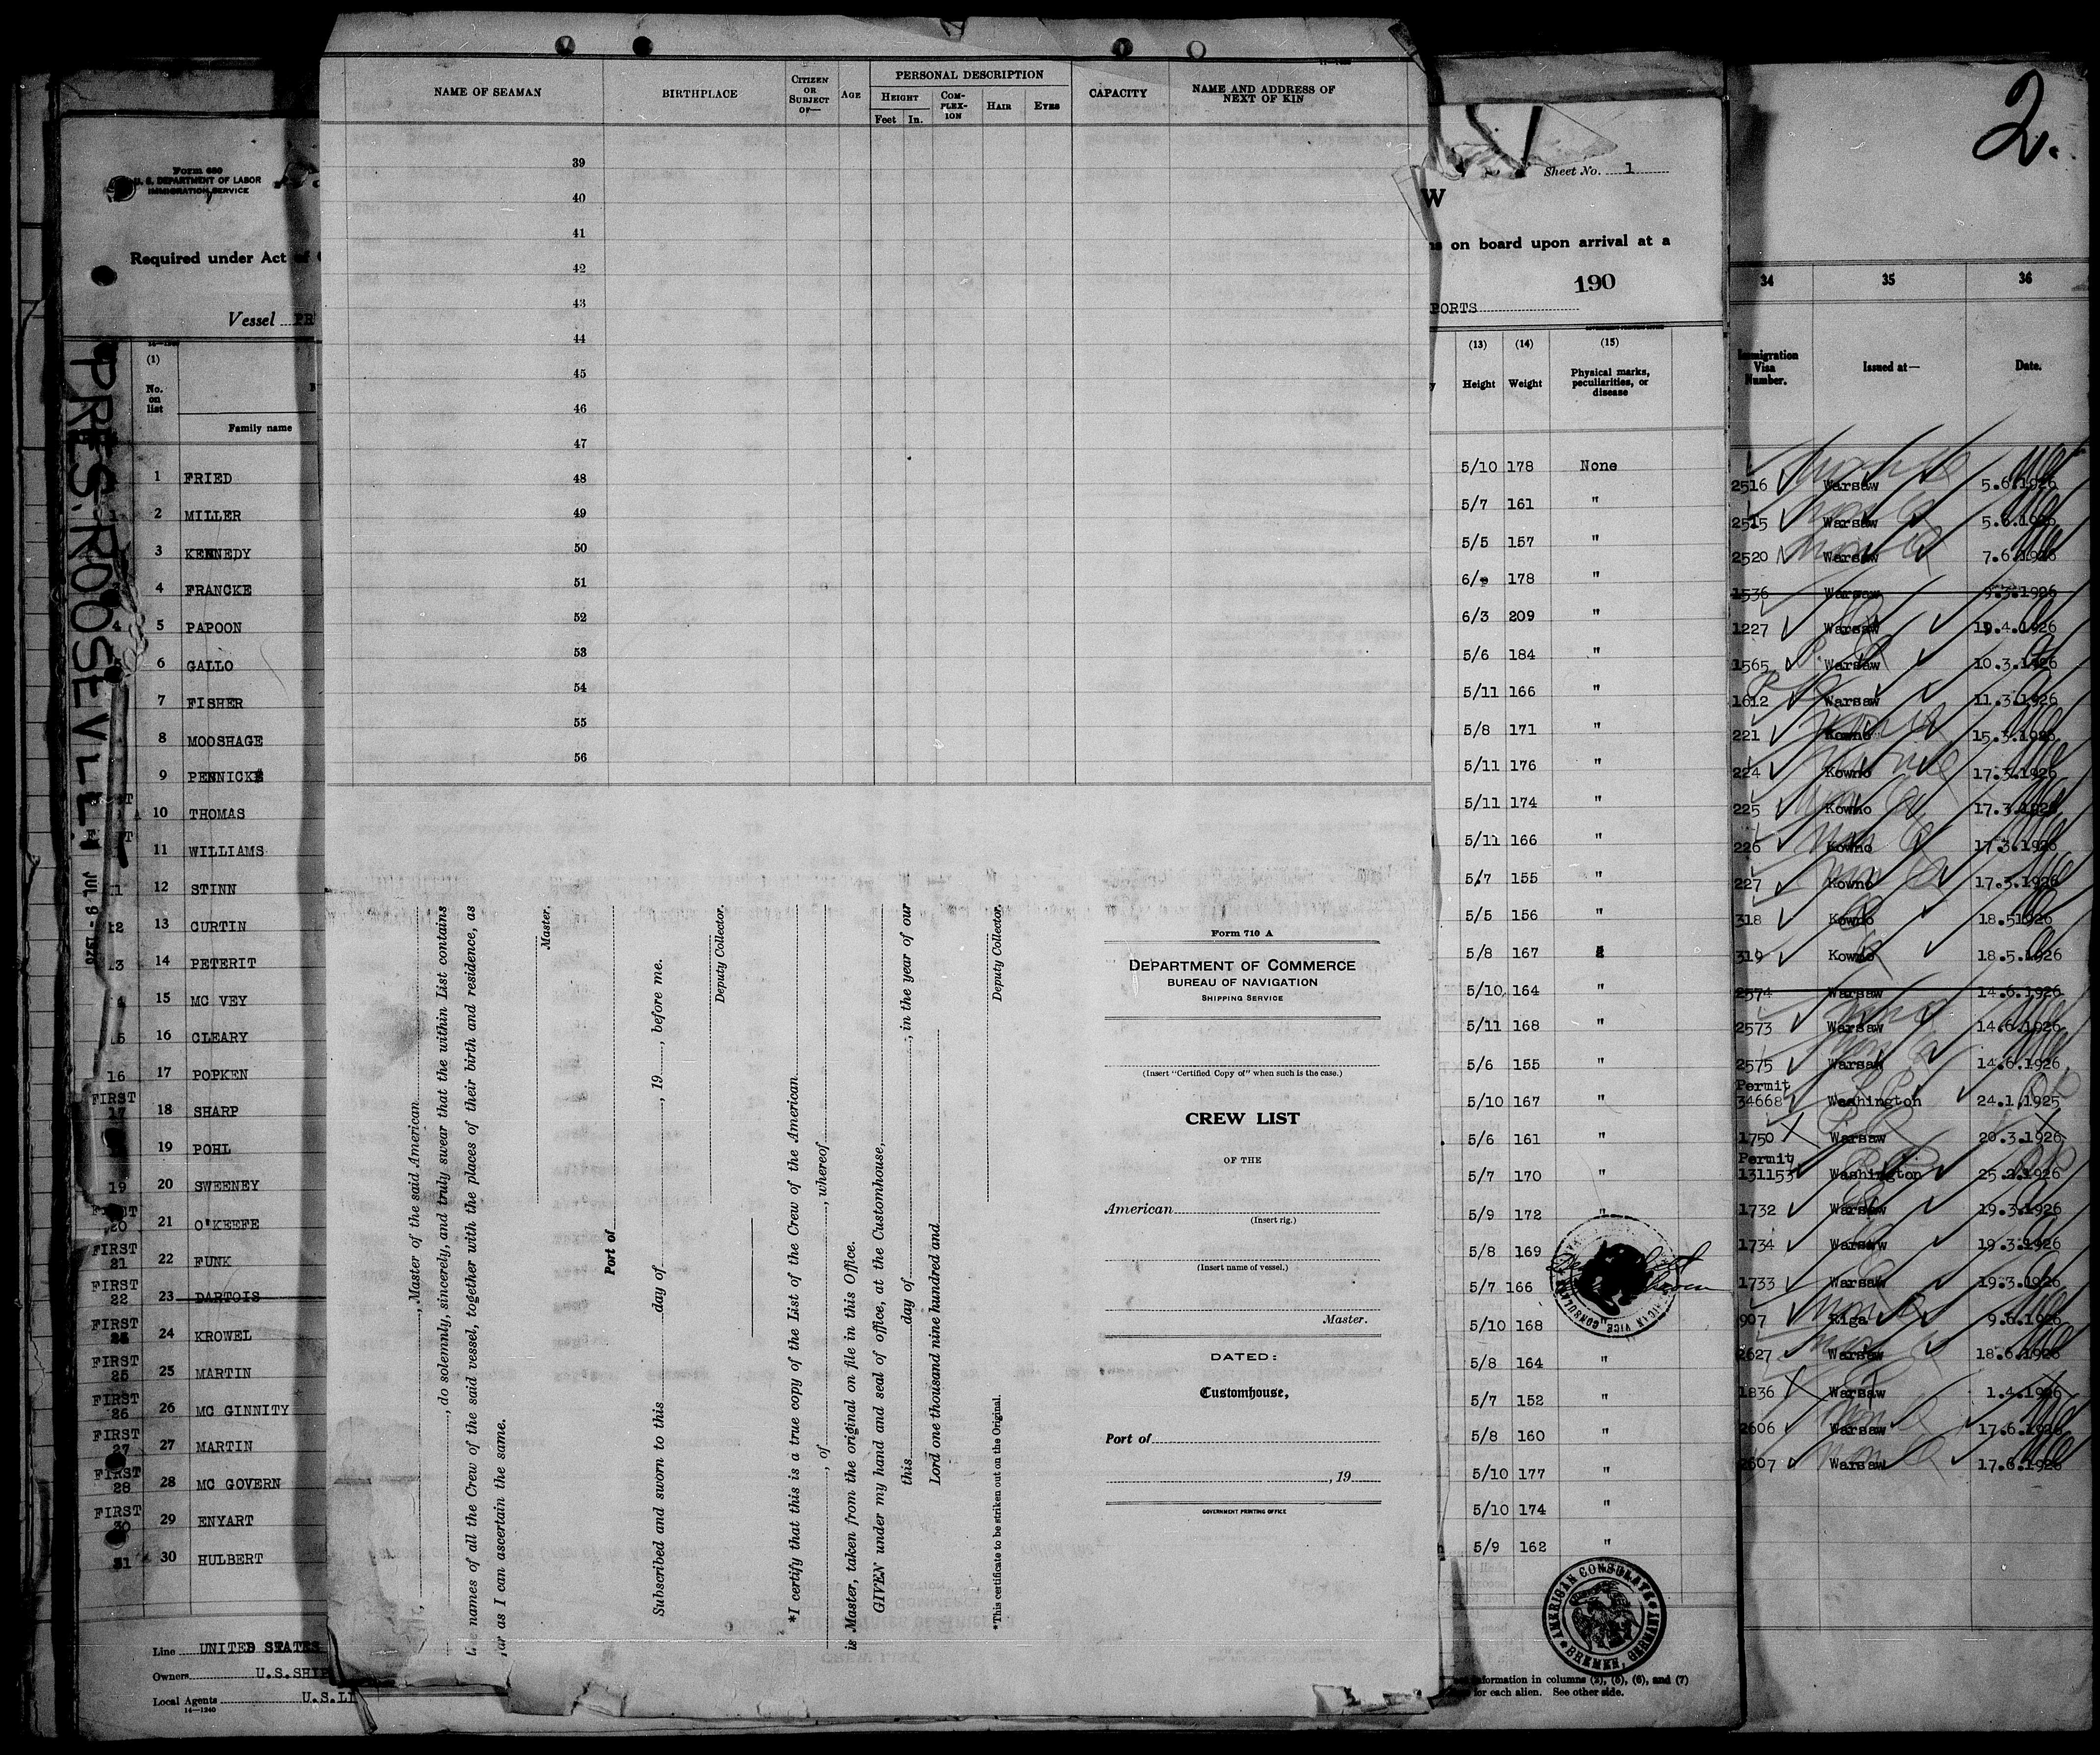 NAME OF SEAMAN
BIRTHPLACE
CITIZEN OR SUBJECT OF—
AGE
PERSONAL DESCRIPTION
HEIGHT
Feet In.
COM-PLEX-ION
HAIR
EYES
CAPACITY
NAME AND ADDRESS OF NEXT OF KIN
39
40
41
42
43
44
45
46
47
48
49
50
51
52
53
54
55
56
Form 680
U. S. DEPARTMENT OF LABOR
IMMIGRATION SERVICE
Required under Act of
Vessel PR
(1)
No. on list
Family name
1 FRIED
2 MILLER
3 KENNEDY
4 FRANCKE
5 PAPOON
6 GALLO
7 FISHER
8 MOOSHAGE
9 PENNICK
10 THOMAS
11 WILLIAMS
12 STINN
13 CURTIN
14 PETERIT
15 MC VEY
16 CLEARY
17 POPKEN
18 SHARP
19 POHL
20 SWEENEY
21 O'KEEFE
22 FUNK
23 DARTOIS
24 KROWEL
25 MARTIN
26 MC GINNITY
27 MARTIN
28 MC GOVERN
29 ENYART
30 HULBERT
Line UNITED STATES
Owners U.S.SHIP
Local Agents U.S.LI
14—1240
PRES. ROOSEVELT
JUL 9-
16
FIRST
17
19
20
FIRST
21
FIRST
22
FIRST
FIRST
25
FIRST
26
FIRST
27
FIRST
28
FIRST
30
31
, Master of the said American
, do solemnly, sincerely, and truly swear that the within List contains
names of all the Crew of the said vessel, together with the places of their birth and residence, as
far as I can ascertain the same.
Master.
Port of
Subscribed and sworn to this day of , 19 , before me.
Deputy Collector.
*I certify that this is a true copy of the List of the Crew of the American
, of , whereof
is Master, taken from the original on file in this Office.
GIVEN under my hand and seal of office, at the Customhouse,
this day of , in the year of our
Lord one thousand nine hundred and
Deputy Collector.
*This certificate to be striken out on the Original.
Form 710 A
DEPARTMENT OF COMMERCE
BUREAU OF NAVIGATION
SHIPPING SERVICE
(Insert "Certified Copy of" when such is the case.)
CREW LIST
OF THE
American
(Insert rig.)
(Insert name of vessel.)
Master.
DATED:
Customhouse,
Port of
, 19
GOVERNMENT PRINTING OFFICE
W
Sheet No. 1
on board upon arrival at a
190
PORTS
(13) (14) (15)
Height Weight Physical marks, peculiarities, or disease
5/10 178 None
5/7 161 "
5/5 157 "
6/ 178 "
6/3 209 "
5/6 184 "
5/11 166 "
5/8 171 "
5/11 176 "
5/11 174 "
5/11 166 "
5/7 155 "
5/5 156 "
5/8 167
5/10 164 "
5/11 168 "
5/6 155 "
5/10 167 "
5/6 161 "
5/7 170 "
5/9 172 "
5/8 169
5/7 166
5/10 168
5/8 164 "
5/7 152 "
5/8 160 "
5/10 177 "
5/10 174 "
5/9 162 "
AMERICAN CONSULATE
BREMEN, GERMANY
information in columns (2), (5), (6), and (7)
for each alien. See other side.
2.
34 35 36
Immigration Visa Number. Issued at— Date.
2516 Warsaw 5.6.1926
2515 Warsaw 5.6.1926
2520 Warsaw 7.6.1926
1536 Warsaw 9.3.1926
1227 Warsaw 19.4.1926
1565 Warsaw 10.3.1926
1612 Warsaw 11.3.1926
221 Kowno 15.3.1926
224 Kowno 17.3.1926
225 Kowno 17.3.1926
226 Kowno 17.3.1926
227 Kowno 17.3.1926
318 Kowno 18.51926
319 Kowno 18.5.1926
2574 Warsaw 14.6.1926
2573 Warsaw 14.6.1926
2575 Warsaw 14.6.1926
Permit
34668 Washington 24.1.1925
1750 Warsaw 20.3.1926
Permit
131153 Washington 25.2.1926
1732 Warsaw 19.3.1926
1734 Warsaw 19.3.1926
1733 Warsaw 19.3.1926
907 Riga 9.6.1926
2627 Warsaw 18.6.1926
1836 Warsaw 1.4.1926
2606 Warsaw 17.6.1926
2607 Warsaw 17.6.1926